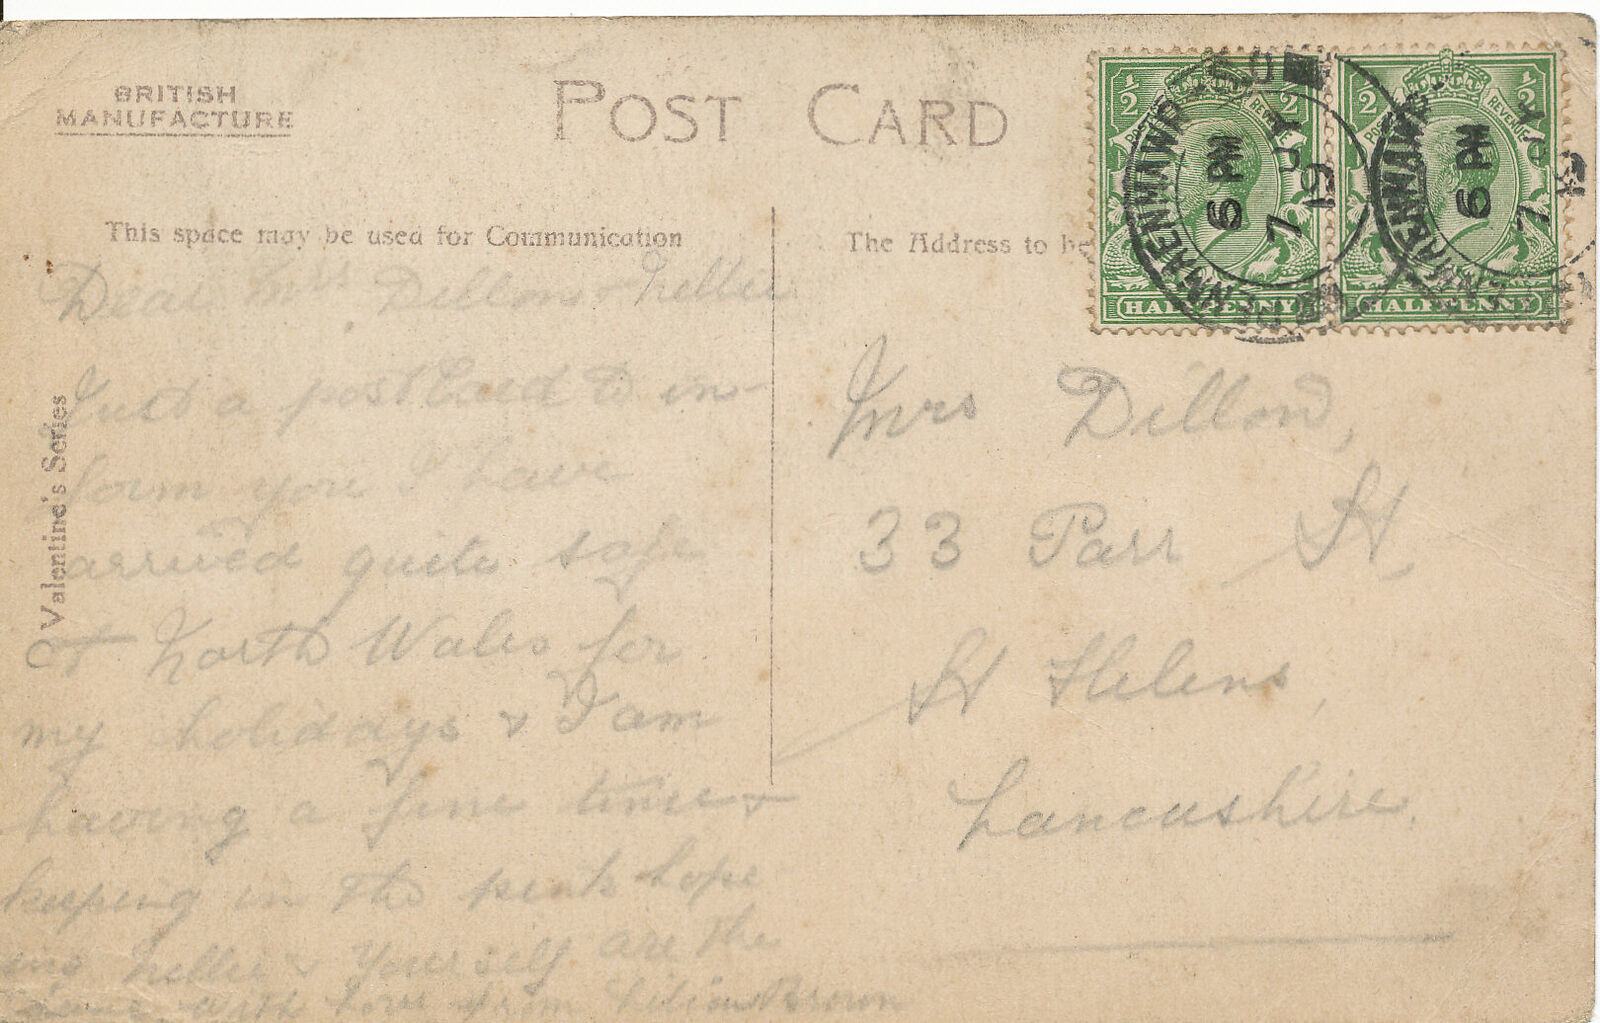 BRITISH
MANUFACTURE
POST CARD
This space may be used for Communication
The Address to be
Valentine's Series
Dear Mrs Dillon & Nellie
Just a postCard to in-
form you I have
arrived quite safe
at North Wales for
my holidays & I am
having a fine time &
keeping in the pink hope
ing Nellie & Yourself are the
same with Love from Lilian Brown
Mrs Dillon,
33 Parr St,
St Helens,
Lancashire.
PENMAENMAWR
6 PM
7
19
PENMAENMAWR
6 PM
7
19
1/2 1/2
POSTAGE REVENUE
HALFPENNY
1/2 1/2
POSTAGE REVENUE
HALFPENNY